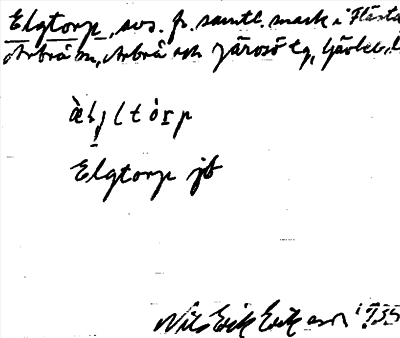 Elgtorp, svs. fr. samtl. mark i Flästa
Arbrå sn, Arbrå och Järvsö tg, Gävleb. l
Elgtorp jb
Nils Erik Erikson 1935